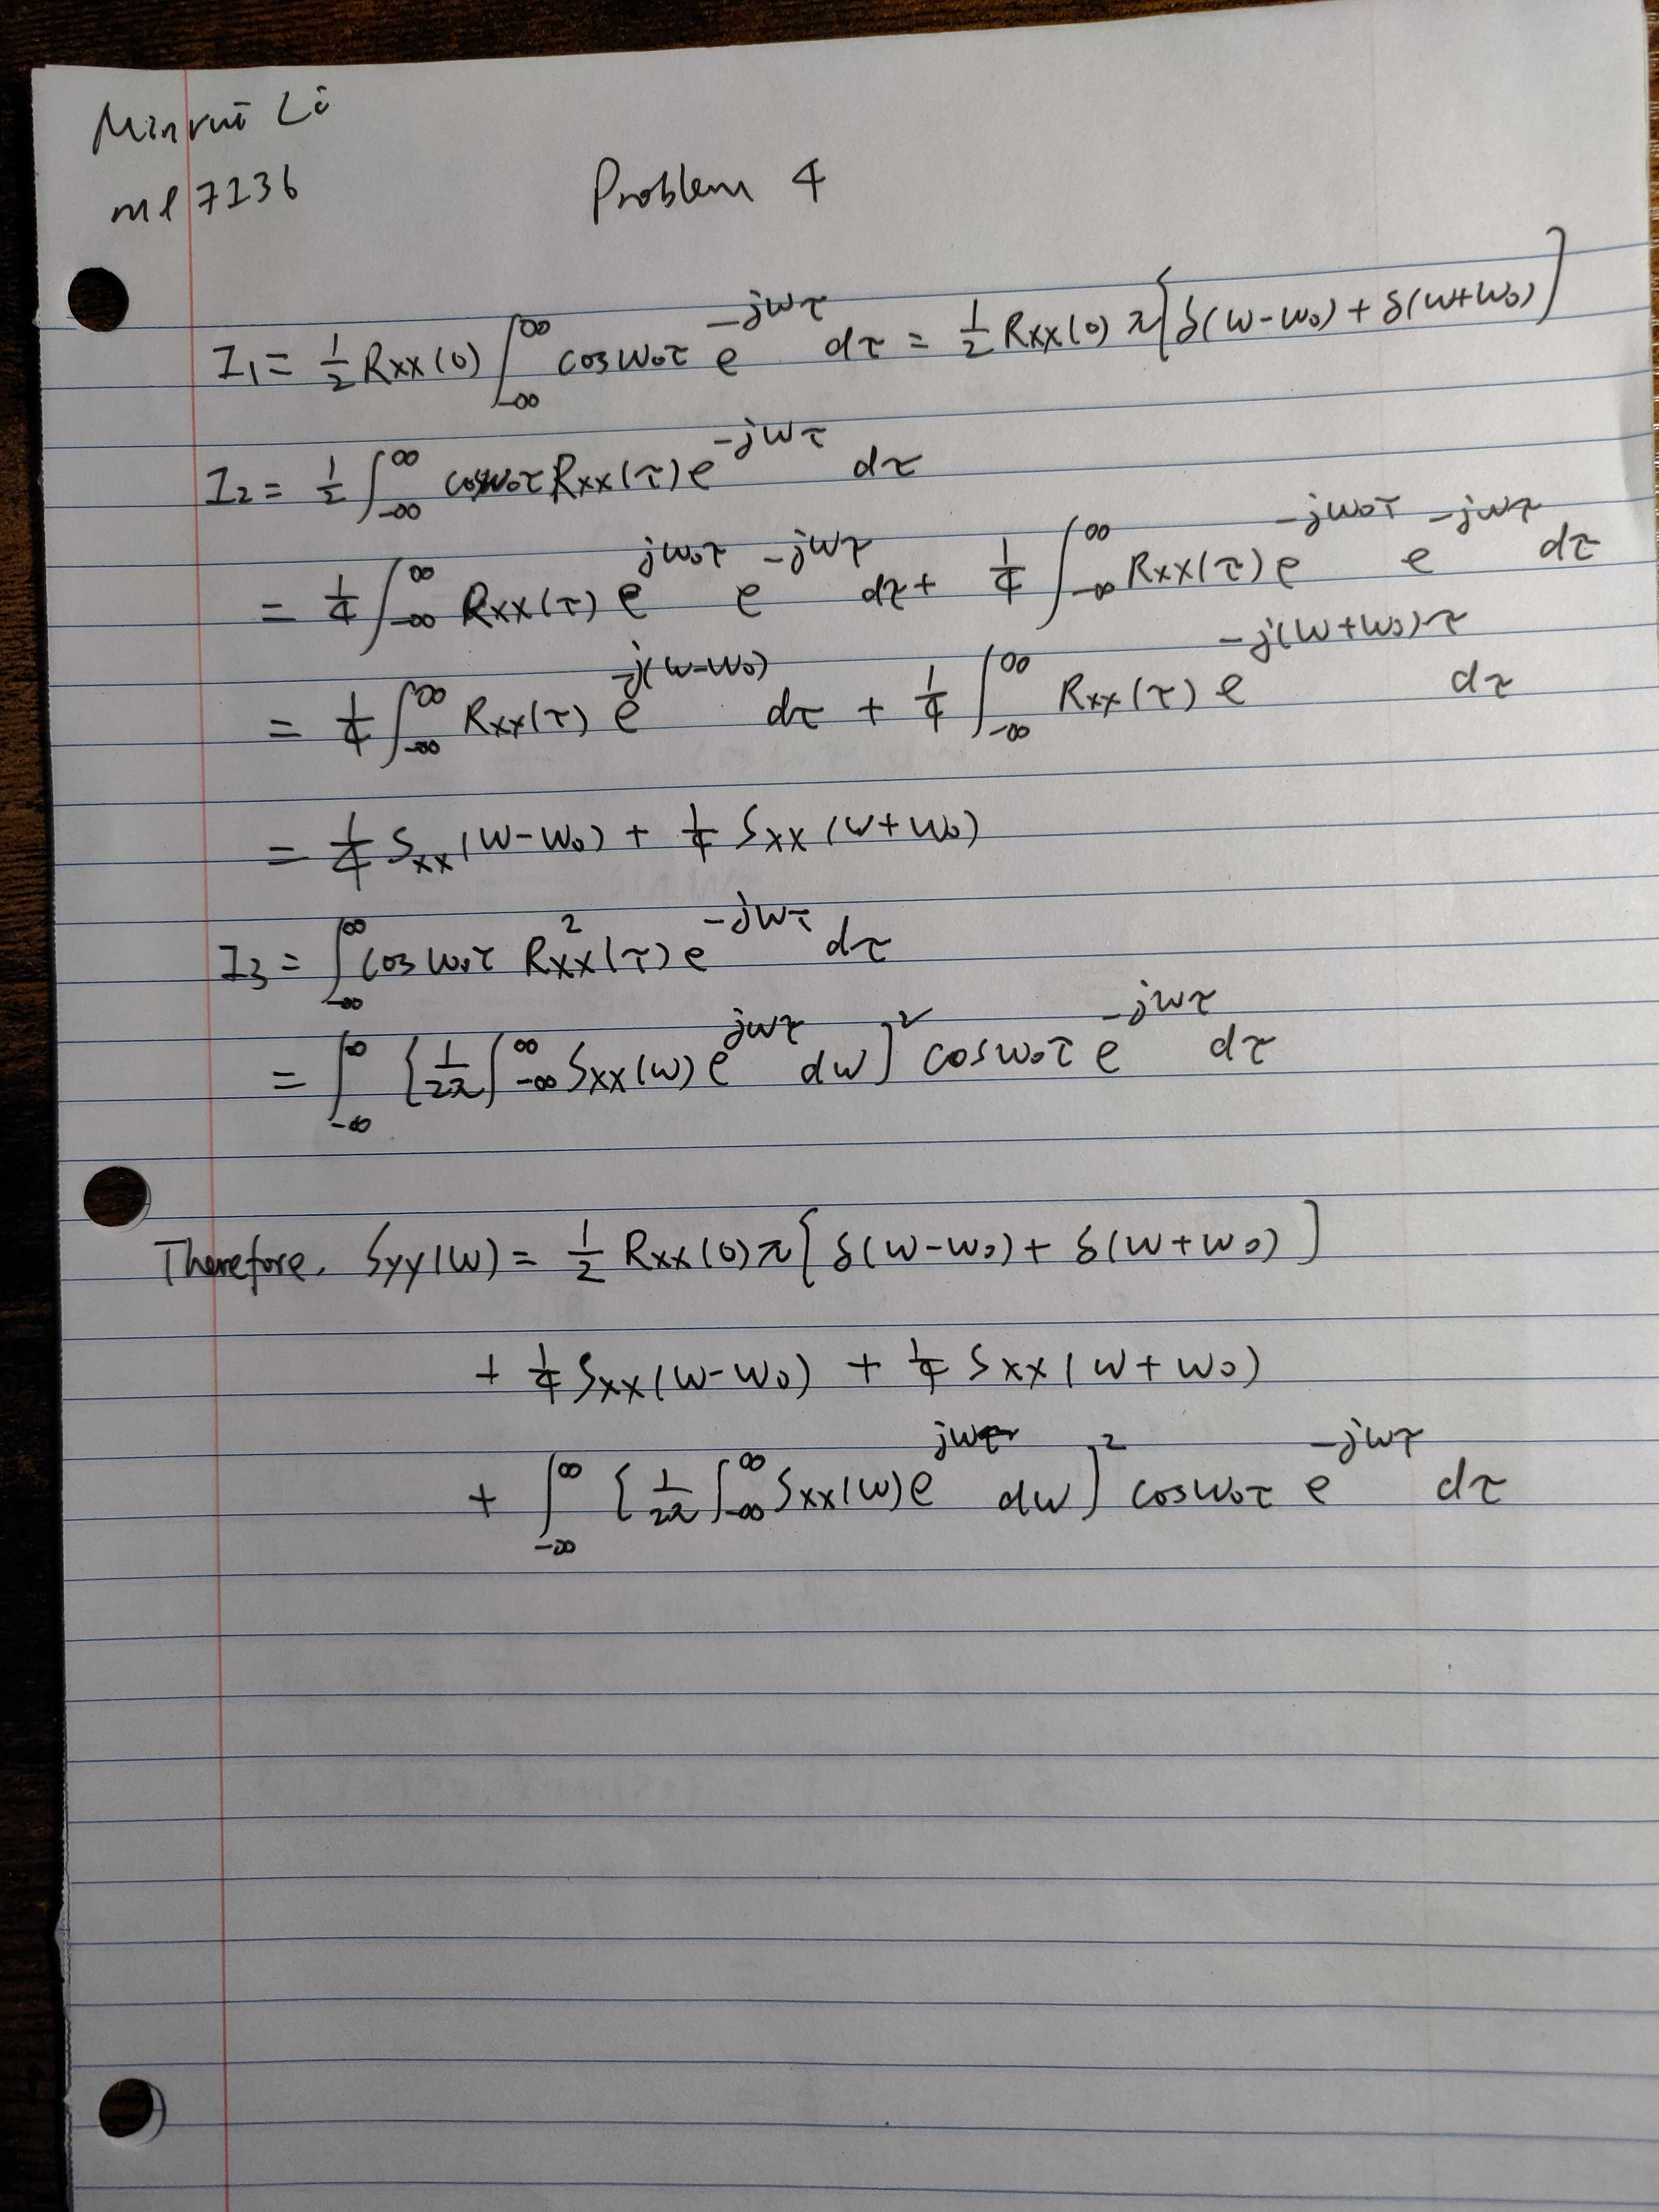 Minrui Li
ml7236
Problem 4
I₁ = 1/2 Rxx(0) ∫_{-∞}^{∞} cosω₀τ e^{-jωτ} dτ = 1/2 Rxx(0) π[δ(ω-ω₀) + δ(ω+ω₀)]
I₂ = 1/2 ∫_{-∞}^{∞} cosω₀τ Rxx(τ) e^{-jωτ} dτ
= 1/4 ∫_{-∞}^{∞} Rxx(τ) e^{jω₀τ} e^{-jωτ} dτ + 1/4 ∫_{-∞}^{∞} Rxx(τ) e^{-jω₀τ} e^{-jωτ} dτ
= 1/4 ∫_{-∞}^{∞} Rxx(τ) e^{-j(ω-ω₀)} dτ + 1/4 ∫_{-∞}^{∞} Rxx(τ) e^{-j(ω+ω₀)τ} dτ
= 1/4 Sxx(ω-ω₀) + 1/4 Sxx(ω+ω₀)
I₃ = ∫_{-∞}^{∞} cosω₀τ Rxx²(τ) e^{-jωτ} dτ
= ∫_{-∞}^{∞} [1/2π ∫_{-∞}^{∞} Sxx(ω) e^{jωτ} dω]² cosω₀τ e^{-jωτ} dτ
Therefore. Syy(ω) = 1/2 Rxx(0) π[δ(ω-ω₀) + δ(ω+ω₀)]
+ 1/4 Sxx(ω-ω₀) + 1/4 Sxx(ω+ω₀)
+ ∫_{-∞}^{∞} [1/2π ∫_{-∞}^{∞} Sxx(ω) e^{jωτ} dω]² cosω₀τ e^{-jωτ} dτ